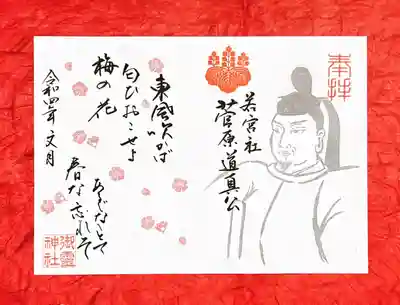 奉拝
若宮社
菅原道真公
東風吹かば
匂ひおこせよ
梅の花
あるじなしとて
春な忘れそ
令和四年文月
御霊
神社